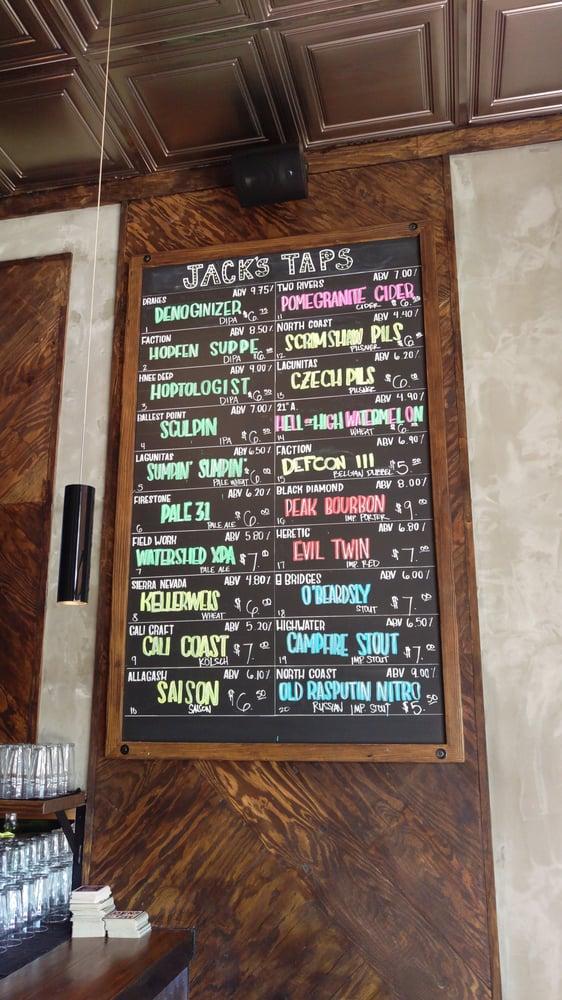 JACK'S TAPS
DRAKES ABV 9.75%
DENOGINIZER
1 DIPA
FACTION ABV 8.50%
HOPFEN SUPPE
2 DIPA
KNEE DEEP ABV 9.00%
HOPTOLOGIST
3 DIPA
BALLEST POINT ABV 7.00%
SCULPIN
4 IPA $6.
LAGUNITAS ABV 6.50%
SUMPIN' SUMPIN'
5 PALE WHEAT
FIRESTONE ABV 6.20%
PALE 31
6 PALE ALE $6.
FIELD WORK ABV 5.80%
WATERSHED XPA $7.
7 PALE ALE
SIERRA NEVADA ABV 4.80%
KELLERWEIS $6.
8 WHEAT
CALI CRAFT ABV 5.20%
CALI COAST $7.
9 KOLSCH
ALLAGASH ABV 6.10%
SAISON $6.50
10 SAISON
TWO RIVERS ABV 7.00%
POMEGRANITE CIDER
11 CIDER
NORTH COAST ABV 4.40%
SCRIMSHAW PILS
12 PILSNER
LAGUNITAS ABV 6.20%
CZECH PILS $6.
13 PILSNER
21ST A. ABV 4.90%
HELL-HIGH WATERMELON
14 WHEAT
FACTION ABV 6.90%
DEFCON III $5.50
15 BELGIAN DUBBEL
BLACK DIAMOND ABV 8.00%
PEAK BOURBON $9.
16 IMP. PORTER
HERETIC ABV 6.80%
EVIL TWIN $7.
17 IMP. RED
8 BRIDGES ABV 6.00%
O'BEARDSLY $7.
18 STOUT
HIGHWATER ABV 6.50%
CAMPFIRE STOUT $7.
19 IMP. STOUT
NORTH COAST ABV 9.00%
OLD RASPUTIN NITRO
20 RUSSIAN IMP. STOUT $5.50